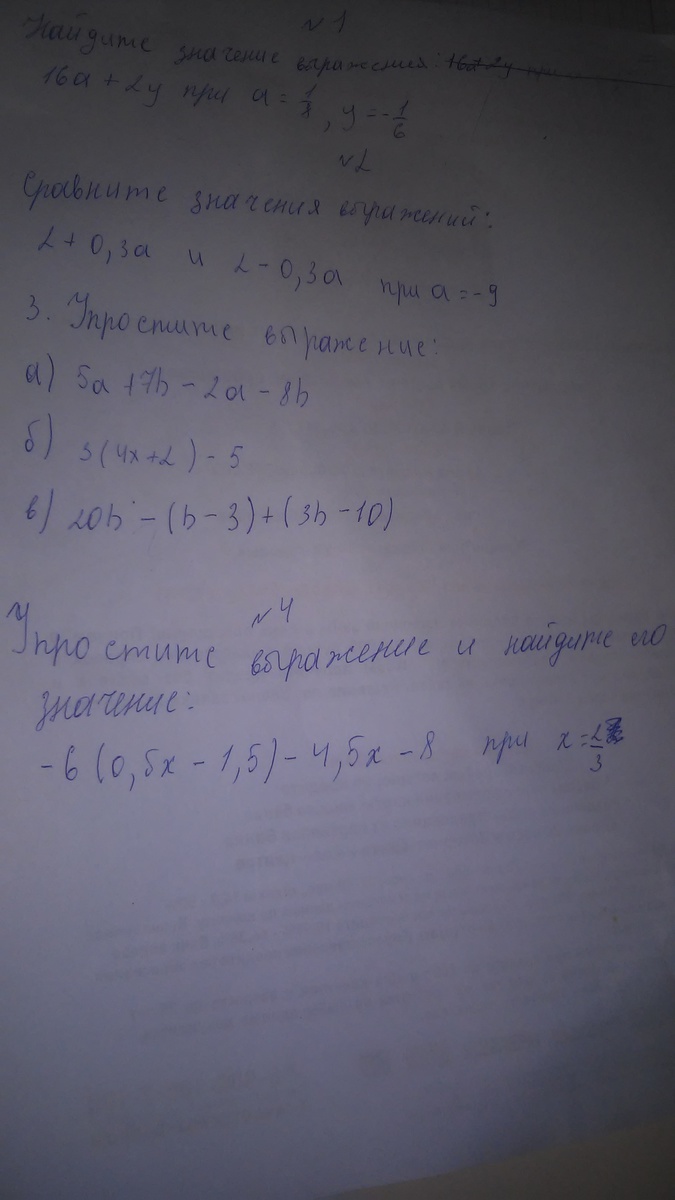 №1
Найдите значение выражений:
16a + 2y при a = 1/8, y = -1/6
№2
Сравните значения выражений:
2 + 0,3a и 2 - 0,3a при a = -9
3. Упростите выражение:
а) 5a + 7b - 2a - 8b
б) 3(4x+2) - 5
в) 20b - (b - 3) + (3b - 10)
№4
Упростите выражение и найдите его
значение:
-6 (0,5x - 1,5) - 4,5x - 8 при x = 2/3